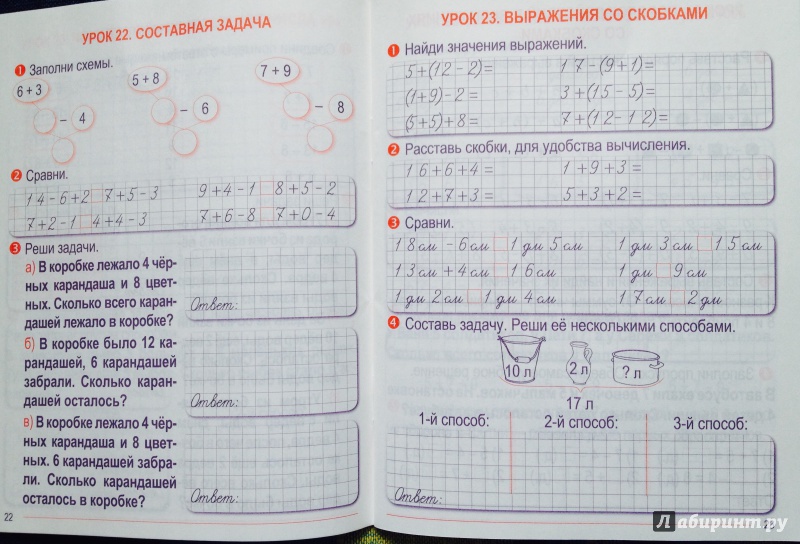 УРОК 22. СОСТАВНАЯ ЗАДАЧА
1 Заполни схемы.
6 + 3
5 + 8
7 + 9
– 4
– 6
– 8
2 Сравни.
14-6+2 7+5-3
9+4-1 8+5-2
7+2-1 4+4-3
7+6-8 7+0-4
3 Реши задачи.
а) В коробке лежало 4 чёр-
ных карандаша и 8 цвет-
ных. Сколько всего каран-
дашей лежало в коробке?
Ответ:
б) В коробке было 12 ка-
рандашей, 6 карандашей
забрали. Сколько каран-
дашей осталось?
Ответ:
в) В коробке лежало 4 чёр-
ных карандаша и 8 цвет-
ных. 6 карандашей забра-
ли. Сколько карандашей
осталось в коробке?
Ответ:
22
УРОК 23. ВЫРАЖЕНИЯ СО СКОБКАМИ
1 Найди значения выражений.
5+(12-2)= 17-(9+1)=
(1+9)-2= 3+(15-5)=
(5+5)+8= 7+(12-12)=
2 Расставь скобки, для удобства вычисления.
16+6+4= 1+9+3=
12+7+3= 5+3+2=
3 Сравни.
18см-6см 1дм 5см 1дм 3см 15см
13см+4см 16см 1дм 9см
1дм 2см 1дм 4см 17см 2дм
4 Составь задачу. Реши её несколькими способами.
10 л 2 л ? л
17 л
1-й способ: 2-й способ: 3-й способ:
Ответ:
Лабиринт.ру